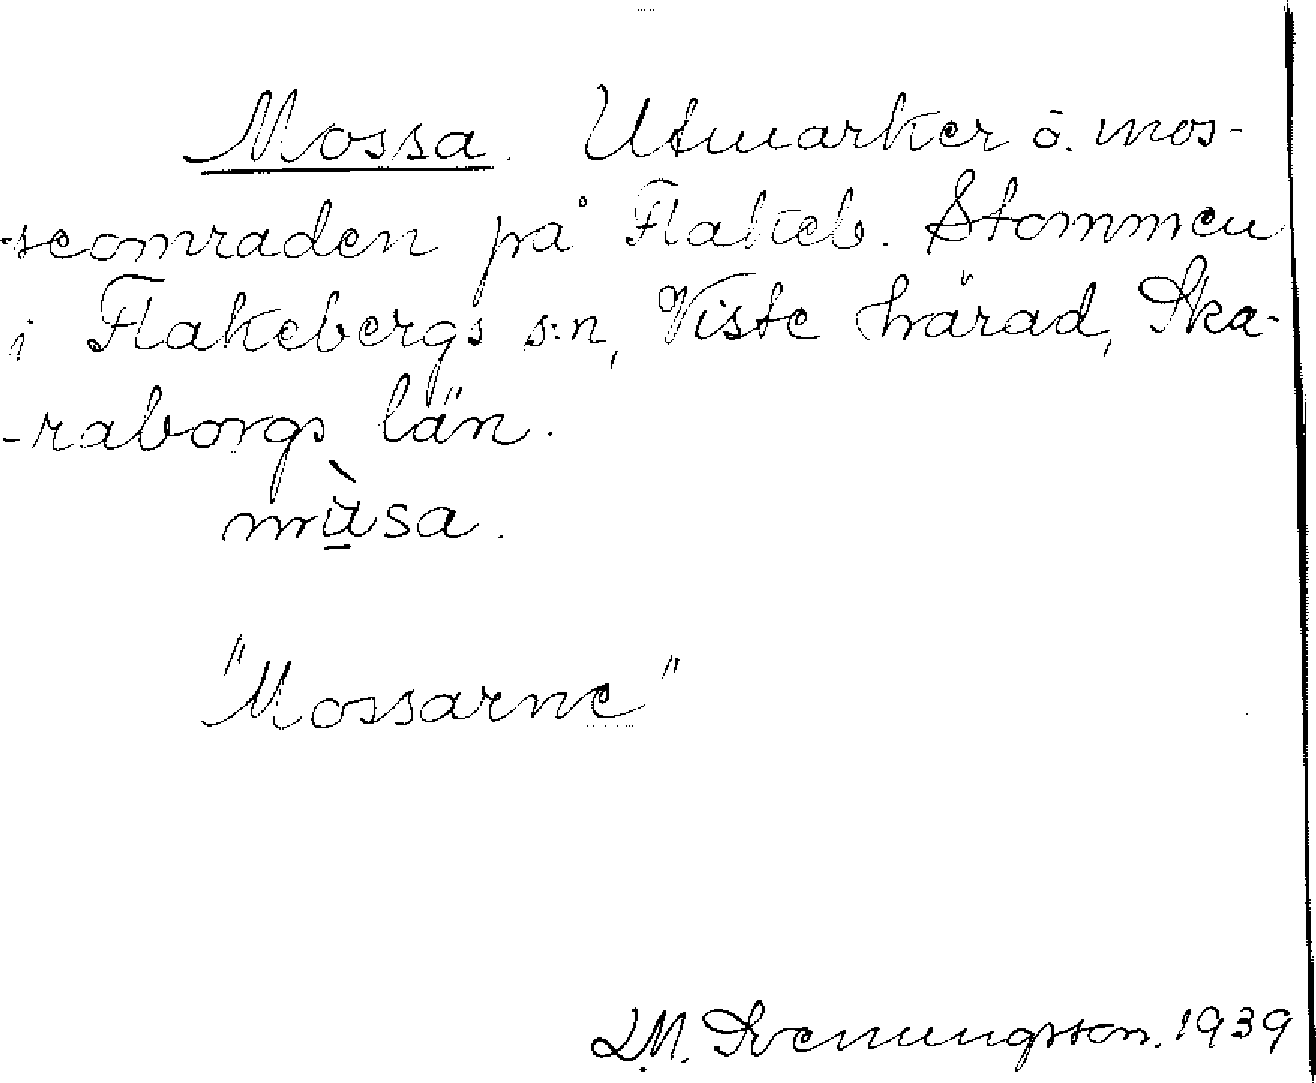 Mossa. Utmarker o. mos-
-seomraden på Flakeb. Stommen
i Flakebergs s:n, Viste härad, Ska-
-raborgs län.
mùsa.
"Mossarne"
L.M. Svenungsson. 1939